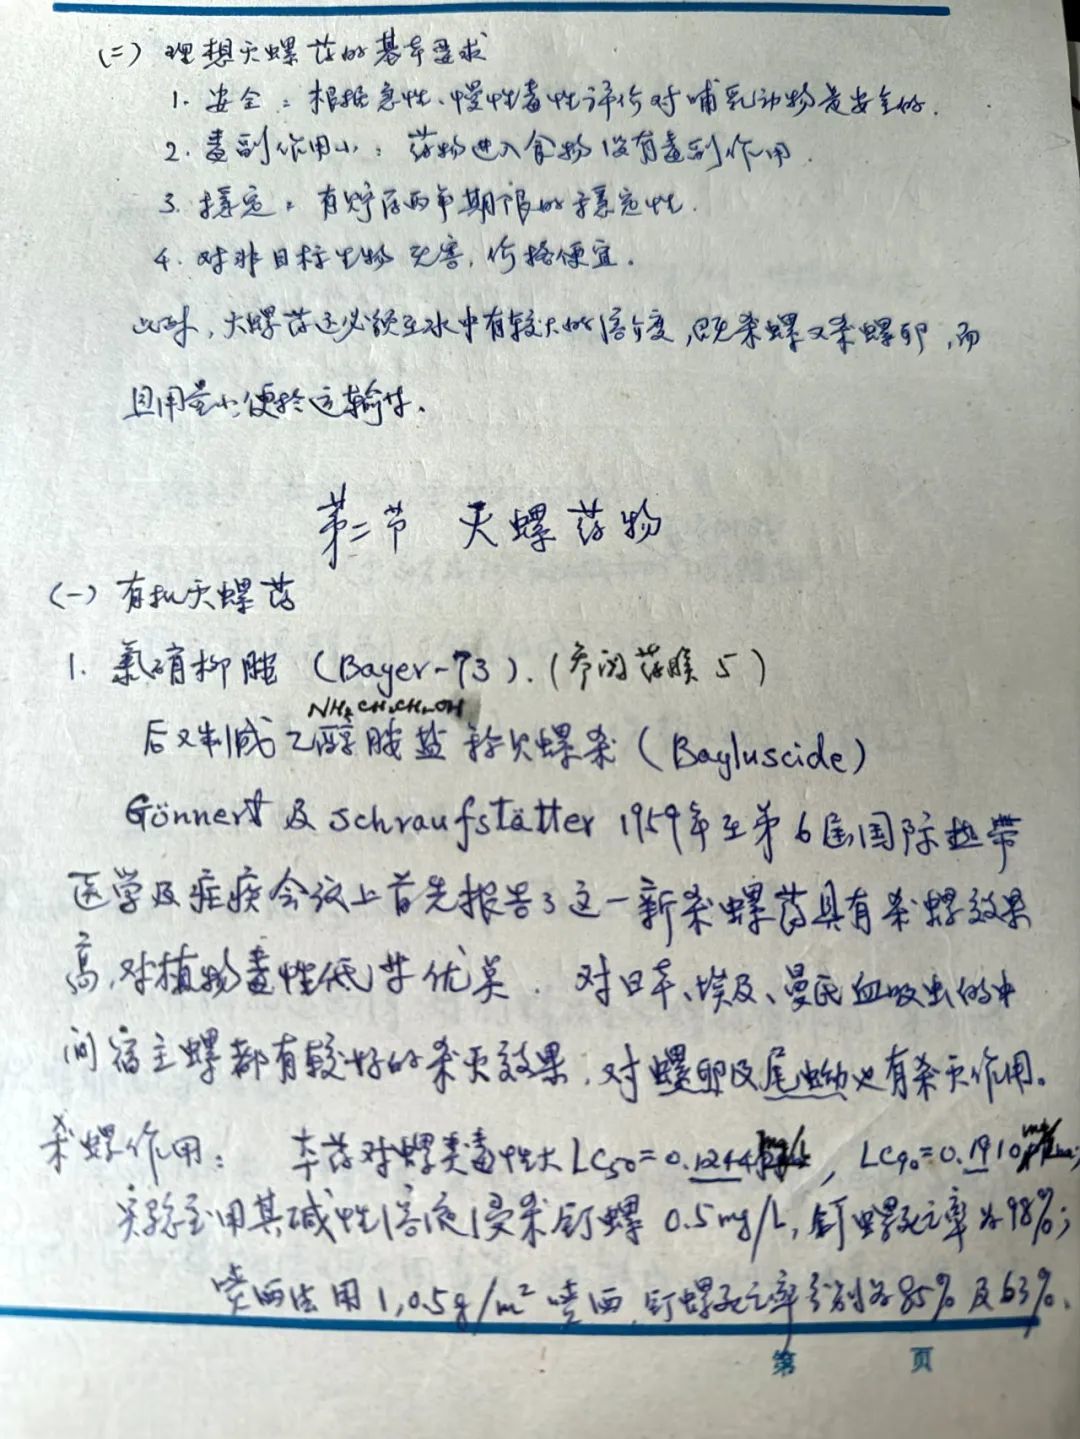 (二) 理想灭螺药的基本要求
1. 安全：根据急性、慢性毒性评价对哺乳动物是安全的.
2. 毒副作用小：药物进入食物没有毒副作用.
3. 稳定：有贮存两年期限的稳定性.
4. 对非目标生物无害,价格便宜.
此外,灭螺药还必须在水中有较大的溶介度,既杀螺又杀螺卵,而
且用量小,便於运输等.
第二节 灭螺药物
(一) 有机灭螺药
1. 氯硝柳胺 (Bayer-73). (参阅药膜 5)
NH₂CH₂CH₂OH
后又制成乙醇胺盐称灭螺杀 (Bayluscide)
Gönnert 及 Schraufstätter 1959年在第6届国际热带
医学及疟疾会议上首先报告了这一新杀螺药具有杀螺效果
高,对植物毒性低等优点. 对日本、埃及、曼氏血吸虫的中
间宿主螺都有较好的杀灭效果,对螺卵及尾蚴也有杀灭作用。
杀螺作用： 本药对螺类毒性大 LC₅₀=0.1244mg/L, LC₉₀=0.1910mg/L;
实验室用其碱性溶液浸杀钉螺 0.5mg/L,钉螺死亡率为98%;
喷洒法用 1,0.5g/m² 喷洒,钉螺死亡率分别为85%及63%.
第 页